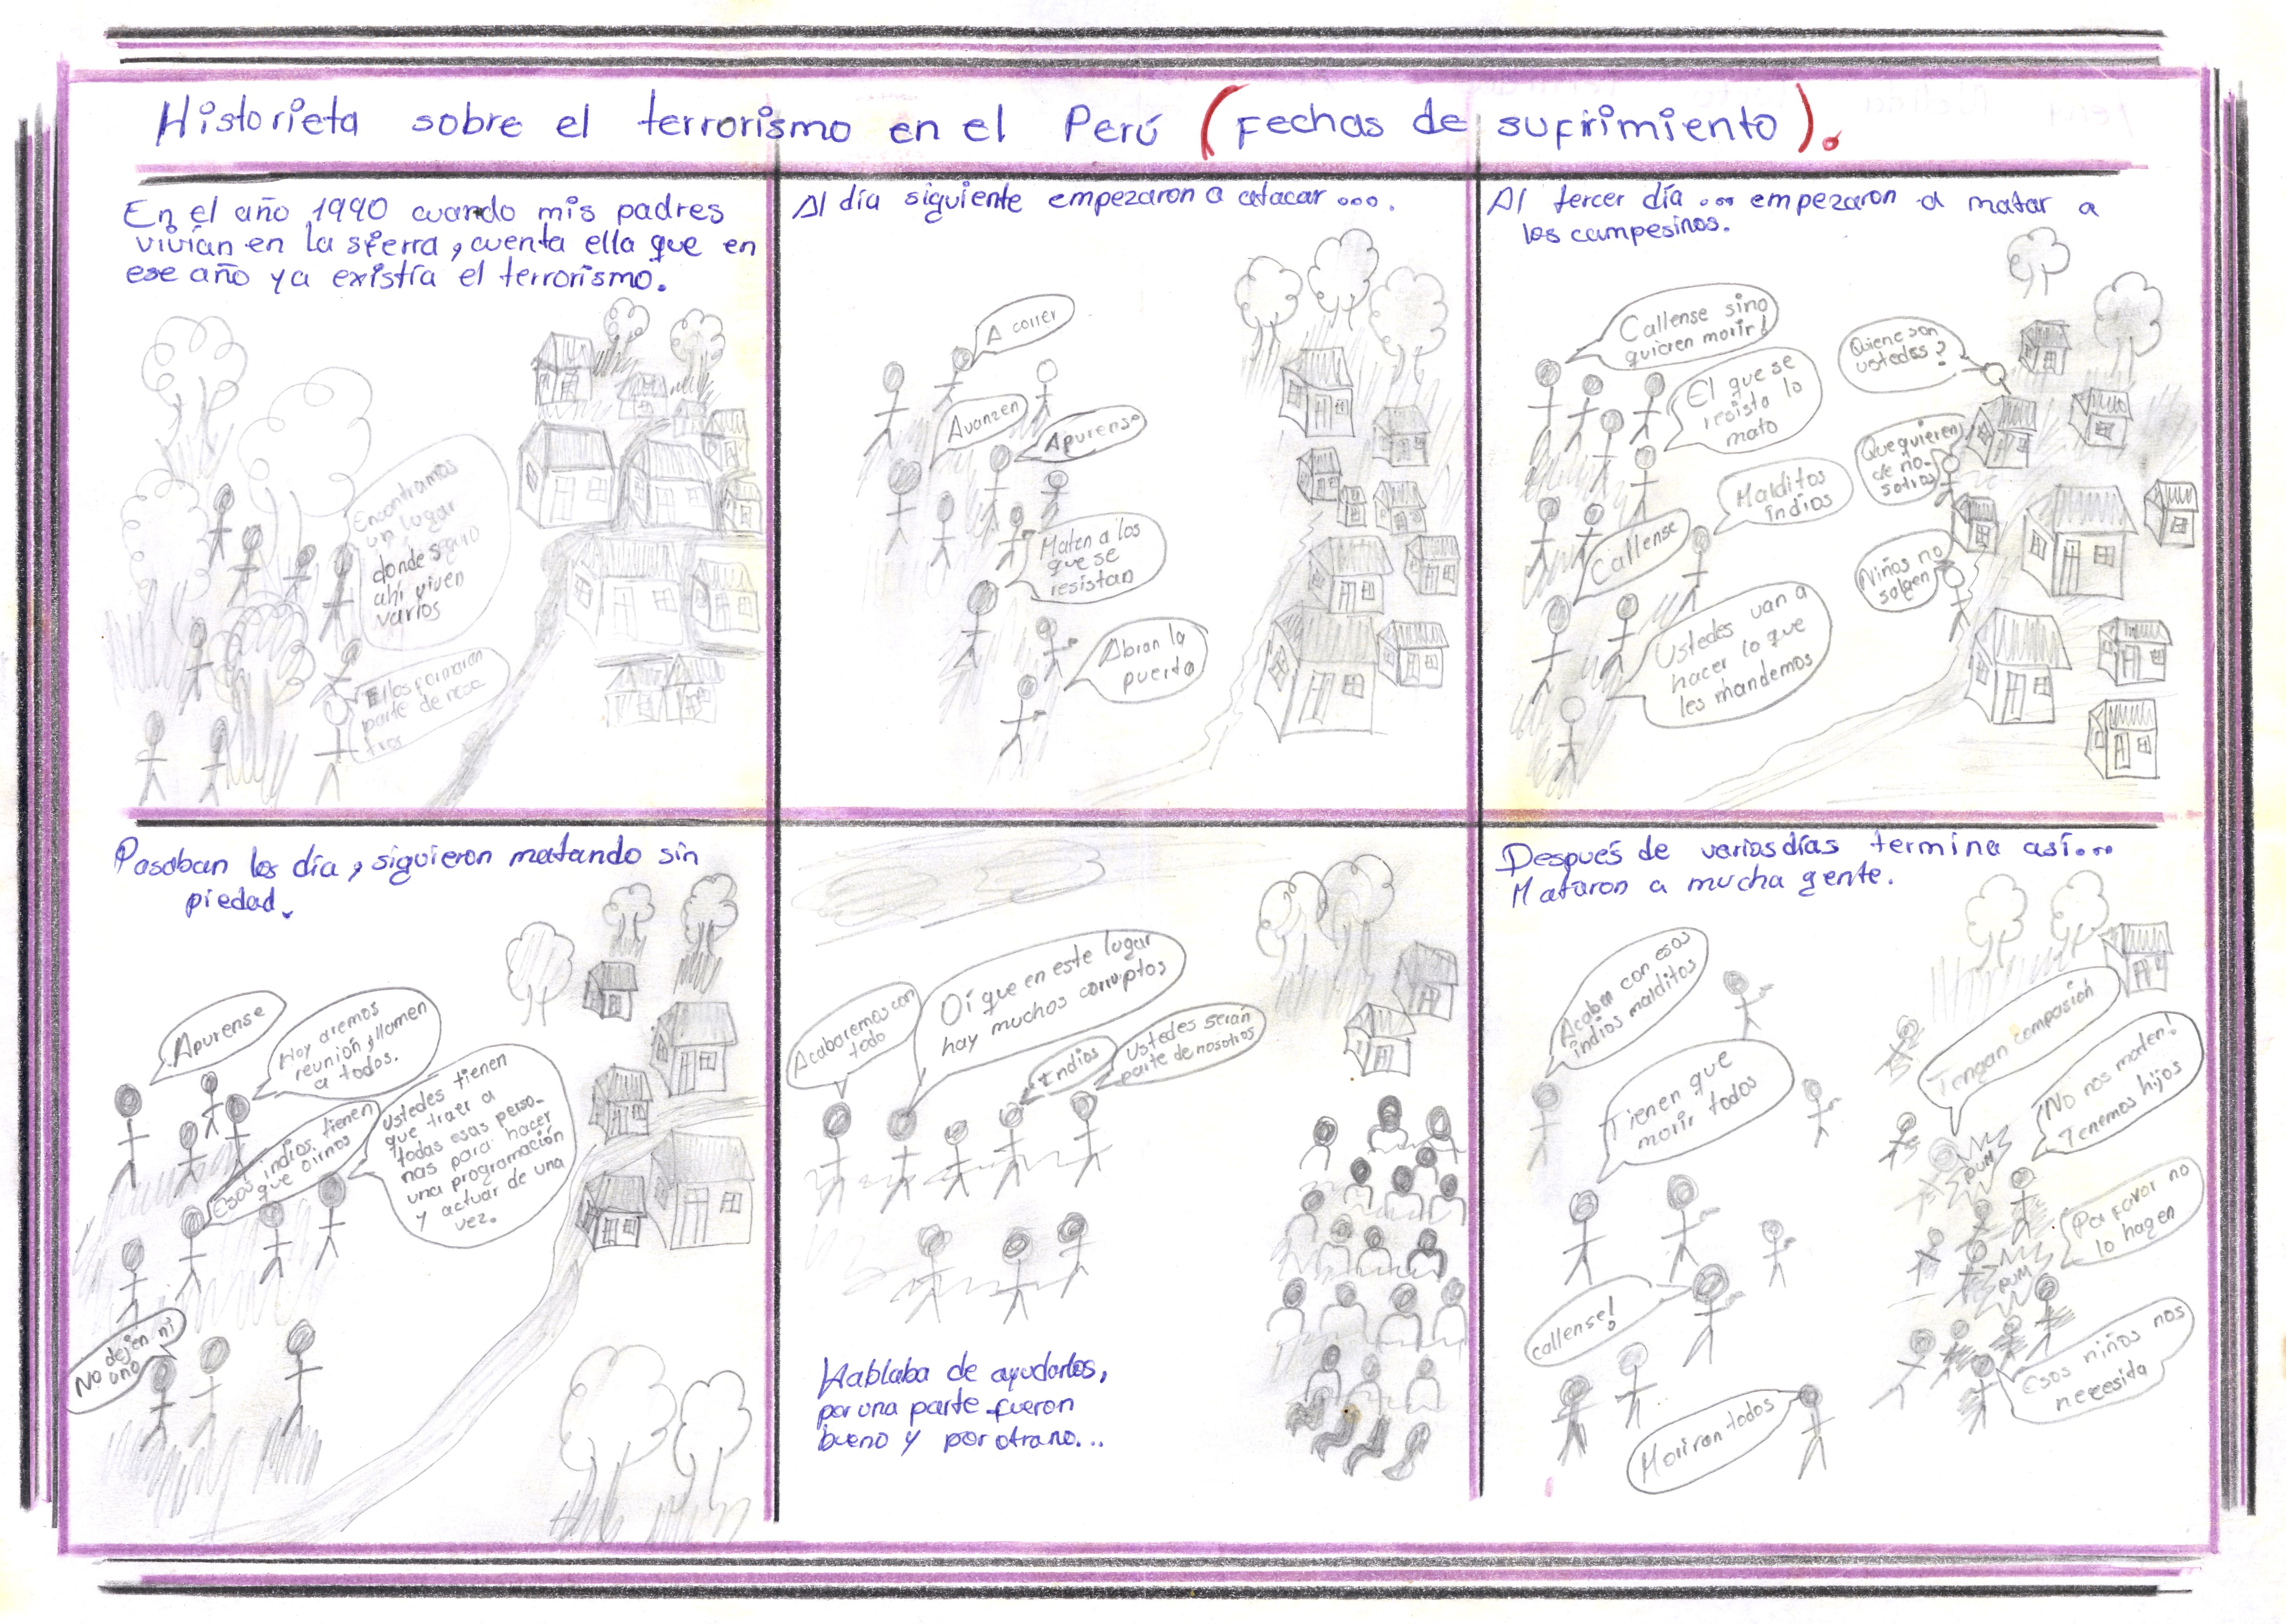 Historieta sobre el terrorismo en el Perú (fechas de sufrimiento).
En el año 1990 cuando mis padres
vivían en la sierra, cuenta ella que en
ese año ya existía el terrorismo.
Encontramos
un lugar
donde
ahí viven
varios
Ellos formaran
parte de
Al día siguiente empezaron a atacar ....
A correr
Avanzen
Apurense
Maten a los
que se
resistan
Abran la
puerta
Al tercer día ... empezaron a matar a
los campesinos.
Callense sino
quieren morir!
Quiene son
ustedes?
El que se
resista lo
mato
Que quieren
de no-
sotros
Malditos
indios
Callense
Niños no
salgen
Ustedes van a
hacer lo que
les mandemos
Pasaban los día, siguieron matando sin
piedad.
Apurense
Hoy aremos
reunión, llamen
a todos.
Esos indios tienen
que oirnos
Ustedes tienen
que traer a
todas esas perso-
nas para hacer
una programación
y actuar de una
vez.
No dejen ni
uno
Acabaremos con
todo
Oí que en este lugar
hay muchos corruptos
Indios
Ustedes serán
parte de nosotros
Hablaba de ayudarlos,
por una parte fueron
bueno y por otra no...
Después de varios días termina así...
Mataron a mucha gente.
Acaban con esos
indios malditos
Tengan compasión
Tienen que
morir todos
No nos maten!
Tenemos hijos
PUM
Por favor no
lo hagen
PUM
callense!
Esos niños nos
necesita
Moriran todos